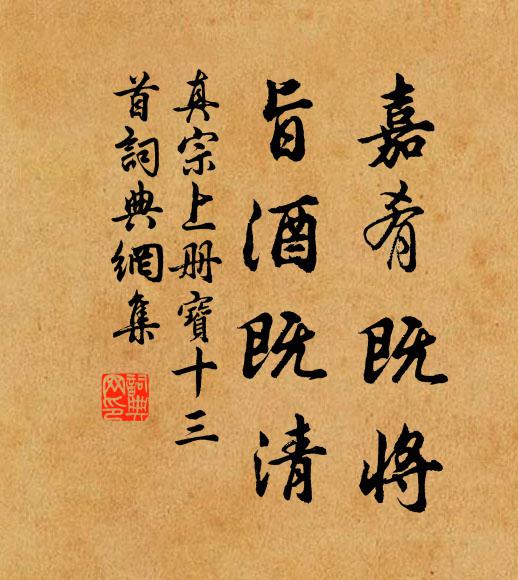 嘉肴既將
旨酒既清
真宗上册寶十三
首詞典網集
詞典
网印